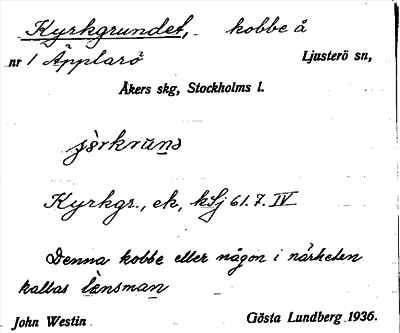 Kyrkgrundet, kobbe å
nr 1 Äpplarö Ljusterö sn,
Åkers skg, Stockholms l.
Kyrkgr., ek, kSj 61.7. IV
Denna kobbe eller någon i närheten
kallas länsman
John Westin Gösta Lundberg 1936.